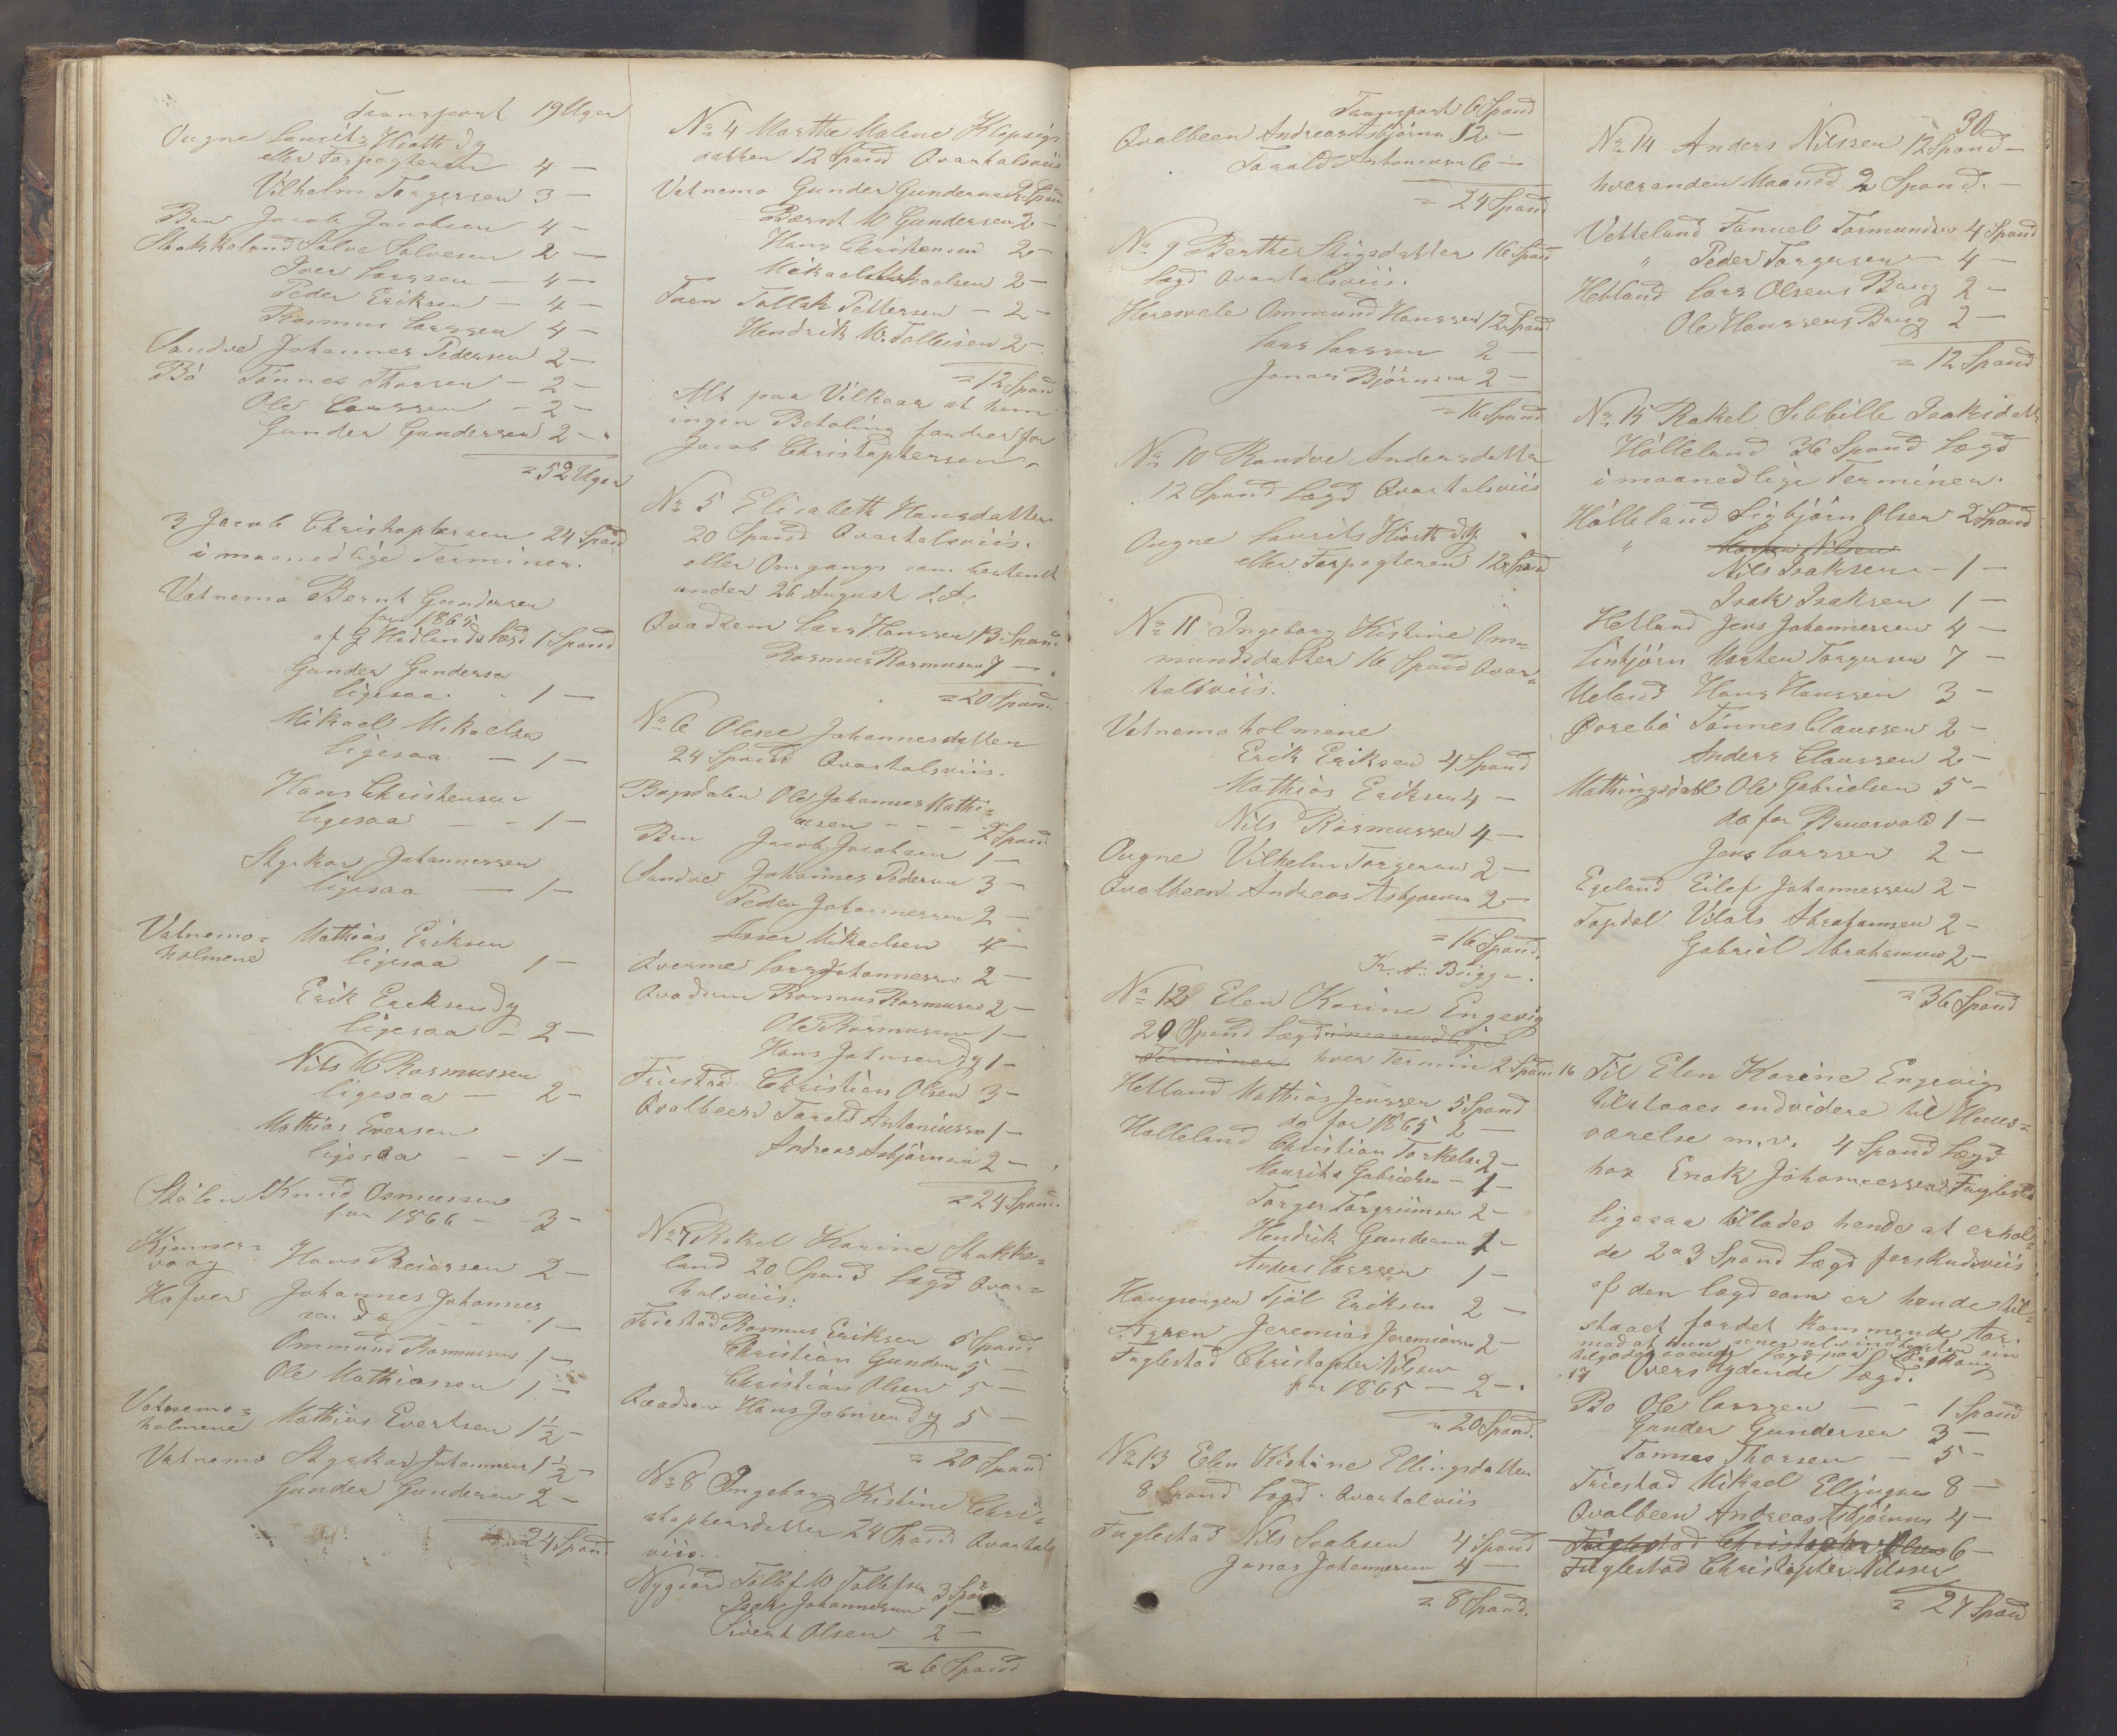 Transport 19 Uger
Ougne Laurits Hiorth dy
eller Forpagteren 4 —
Vilhelm Torgersen 3 —
Bru Jacob Jacobsen 4 —
Stokkeland Salve Salvesen 2 —
Iver Larssen — 4 —
Peder Eriksen — 4 —
Rasmus Larssen 4 —
Sandve Johannes Pedersen 2 —
Bö Tönnes Thorsen — 2 —
Ole Larssen — 2 —
Gunder Gundersen 2 —
= 52 Uger
3 Jacob Christophersen 24 Spand
i maanedlige Terminer.
Vatnemo Bernt Gundersen
for 1865
af G Hadlands Lægd 1 Spand
Gunder Gundersen
ligesaa - 1 —
Mikael Mikaelsen
ligesaa — 1 —
Hans Christensen
ligesaa — - 1 —
Styrkor Johannessen
ligesaa — 1 —
Vatnemo= Mathias Eriksen
holmene ligesaa 1 —
Erik Ericksen dy
ligesaa — 2 —
Nils M Rasmussen
ligesaa — 2 —
Mathias Eversen
ligesaa — - 1 —
Stölen Knud Osmussen
for 1866 — - 3 —
Hans Reiersen 2 —
Johannes Johannes
Ommund Rasmussen 1 —
Ole Mathiassen 1 —
Vatnemo=
holmene Mathias Evertsen 1½ —
Vatnemo Styrkor Johannesen 1½ —
Gunder Gundersen 2 —
= 24 Spand
No 4 Marthe Malene Klepsigs
datter 12 Spand Qvartalsviis
Vatnemo Gunder Gundersen 2 Spand
Bærnt M Gundersen 2 —
Hans Christensen 2 —
Mikael Mikaelsen 2 —
Tuen Tollak Pettersen — 2 —
Hendrik M. Tolleisen 2 —
= 12 Spand
Alt paa Vilkaar at hun
ingen Betaling fordrer for
Jacob Christophersen
No 5 Elisabeth Hansdatter
20 Spand Qvartalsviis.
eller Omgangs som bestemt
under 26 August d. A.
Qvadsem Lars Hanssen 13 Spand
Rasmus Rasmusen 7 —
= 20 Spand
No 6 Olene Johannesdatter
24 Spand Qvartalsviis.
Bögsdalen Ole Johannes Mathi=
asen — — — 2 Spand
Bru Jacob Jacobsen 1 —
Sandve Johannes Pedersen 3 —
Peder Johannessen 2 —
Mikaelsen 4 —
Qverme Lars Johannessen 2 —
Qvadsem Rasmus Rasmusen 2 —
Ole Rasmusen 1 —
Hans Johnsen dy 1 —
Friestad Christian Olsen 3 —
Qvalbeen Tarald Antoniussen 1 —
Andreas Asbjörnsen 2 —
= 24 Spand.
No 7 Rakel Karine Stokke=
land 20 Spand Lægd Qvar=
talsviis.
Friestad Rasmus Eriksen 5 Spand
Christian Gundersen 5 —
Christian Olsen 5 —
Qvadsem Hans Johnsen dy 5 —
= 20 Spand
No 8 Ingeborg Kistine Chri=
stophersdatter 24 Spand Qvartals
viis.
Nygaard Tollef M Tollefsen 3 Spand
Isak Johannesen 1 —
Sivert Olsen 2 —
= 6 Spand
Transport 6 Spand
Qvalbeen Andreas Asbjörnsen 12 —
Tarald Antoniusen 6 —
= 24 Spand
No 9 Berthe Stigsdatter 16 Spand
Lægd Qvartalsviis.
Heresvele Ommund Hanssen 12 Spand
Lars Larssen 2 —
Jonas Björnsen 2 —
= 16 Spand
No 10 Randve Andersdatter
12 Spand Lægd Qvartalsviis
Ougne Laurits Hiorth dy
eller Forpagteren 12 Spand
No 11 Ingeborg Kistine Om=
mundsdatter 16 Spand Qvar=
talsviis.
Vatnemoholmene
Erik Eriksen 4 Spand
Mathias Eriksen 4 —
Nils Rasmussen 4 —
Ougne Vilhelm Torgersen 2 —
Qvalbeen Andreas Asbjörnsen 2 —
= 16 Spand.
Kr. A. Bügge.
No 12 Elen Karine Engevig
20 Spand Lægd i maanedlige
Terminer hver Termin 2 Spand
Hetland Mathias Jenssen 5 Spand
do for 1865 2 —
Holleland Christian Torkelsen 2 —
Mourits Gabrielsen — 1 —
Torger Torgrimsen 2 —
Hendrik Gundersen 1 —
Anders Larssen 1 —
Haugsengen Tjöl Eriksen 2 —
Jeremias Jeremiassen 2 —
Fuglestad Christopher Nilsen
for 1865 — 2 —
= 20 Spand.
No 13 Elen Kistine Ellingsdatter
8 Spand Lægd Qvartalviis
Fuglestad Nils Soalesen 4 Spand
Jonas Johannesen 4 —
= 8 Spand.
30
No 14 Anders Nilssen 12 Spand —
hveranden Maaned 2 Spand. —
Vetteland Fanuel Tormundsen 4 Spand
" Peder Torgersen — 4 —
Hetland Lars Olsens Brug 2 —
Ole Hanssens Brug 2 —
= 12 Spand
No 15 Rakel Sibbille Isaksdatter
Hölleland 36 Spand Lægd
i maanedlige Terminer.
Hölleland Sigbjörn Olsen 2 Spand
" Nilsen
Nils Isaksen — 1 —
Isak Isaksen 1 —
Hetland Jens Johannessen 4 —
Linbjörn Morten Torgersen 7 —
Ueland Hans Hanssen 3 —
Qvrebö Tönnes Claussen 2 —
Anders Claussen 2 —
Mathingsdal Ole Gabrielsen 5 —
do for Pruervold 1 —
Jens Larssen 2 —
Egeland Eilef Johannessen 2 —
Topdal Vilals Abrahamsen 2 —
Gabriel Abrahamsen 2 —
= 36 Spand
16 Til Elen Karine Engevig
tilstaaes endvidere til Huus=
værelse m.v. 4 Spand Lægd
hos Enok Johannessen Fuglestad
ligesaa tillades hende at erhol=
de 2 a 3 Spand Lægd forskudsviis
af den Lægd som er hende til=
staaet for det kommende Aar.
17 Overskydende Lægd.
Bö Ole Larssen — — 1 Spand
Gunder Gundersen 3 —
Tönnes Thorsen — 5 —
Friestad Mikael Ellingsen 8 —
Qvalbeen Andreas Asbjörnsen 4 —
Fuglestad Christopher Olsen 6 —
Fuglestad Christopher Nilssen
= 27 Spand